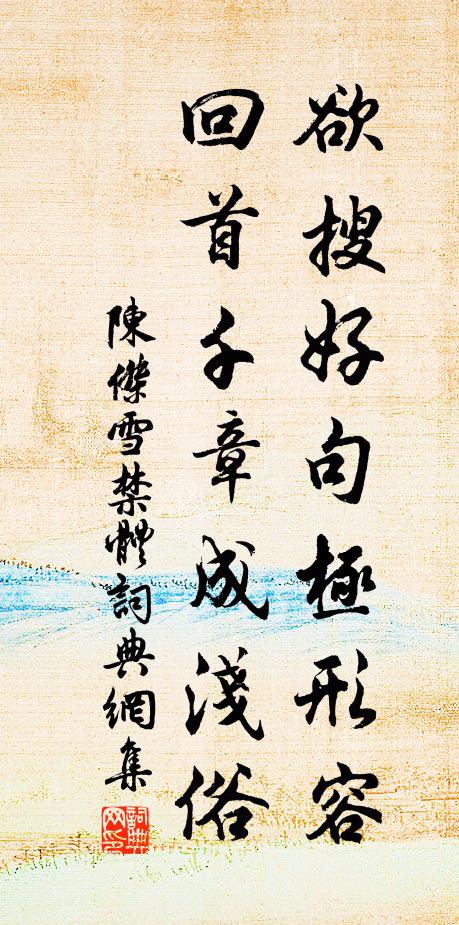 欲搜好句極形容
回首千章成淺俗
陳傑雪禁體詞典網集
詞典網印